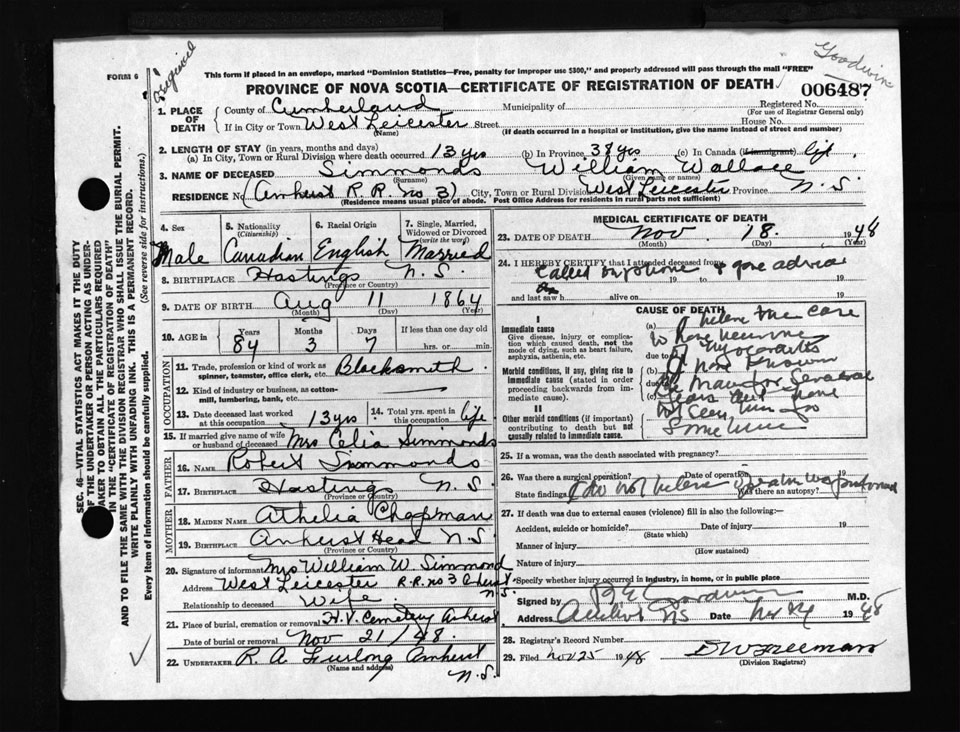 Goodwin
FORM 6
This form if placed in an envelope, marked "Dominion Statistics—Free, penalty for improper use $300," and properly addressed will pass through the mail "FREE"
PROVINCE OF NOVA SCOTIA—CERTIFICATE OF REGISTRATION OF DEATH
006487
1. PLACE OF DEATH
County of Cumberland Municipality of
Registered No.
(For use of Registrar General only)
If in City or Town West Leicester Street House No.
(Name) (If death occurred in a hospital or institution, give the name instead of street and number)
2. LENGTH OF STAY (in years, months and days)
(a) In City, Town or Rural Division where death occurred 13 yrs (b) In Province 38 yrs (c) In Canada (if immigrant) life
3. NAME OF DECEASED Simmonds William Wallace
(Surname) (Given name or names)
RESIDENCE No. (Amherst R.R. no 3) City, Town or Rural Division West Leicester Province N.S.
(Residence means usual place of abode. Post Office Address for residents in rural parts not sufficient)
4. Sex
Male
5. Nationality
(Citizenship)
Canadian
6. Racial Origin
English
7. Single, Married, Widowed or Divorced
(write the word)
Married
8. BIRTHPLACE Hastings N.S.
(Province or Country)
9. DATE OF BIRTH Aug 11 1864
(Month) (Day) (Year)
10. AGE in
Years Months Days If less than one day old
84 3 7 hrs. or min.
OCCUPATION
11. Trade, profession or kind of work as Blacksmith
spinner, teamster, office clerk, etc.
12. Kind of industry or business, as cotton-
mill, lumbering, bank, etc.
13. Date deceased last worked at this occupation 13 yrs
14. Total yrs. spent in this occupation life
15. If married give name of wife or husband of deceased Mrs Celia Simmonds
FATHER
16. NAME Robert Simmonds
17. BIRTHPLACE Hastings N.S.
(Province or Country)
MOTHER
18. MAIDEN NAME Athelia Chapman
19. BIRTHPLACE Amherst Head N.S.
(Province or Country)
20. Signature of informant Mrs William W. Simmond
Address West Leicester R.R. no 3
N.S.
Relationship to deceased Wife
21. Place of burial, cremation or removal H.V. Cemetery Amherst
Date of burial or removal Nov 21/48.
22. UNDERTAKER R. A. Furlong Amherst
(Name and address)
N.S.
MEDICAL CERTIFICATE OF DEATH
23. DATE OF DEATH Nov. 18. 1948
(Month) (Day) (Year)
24. I HEREBY CERTIFY that I attended deceased from
Called on phone & gave advice
19 to 19
and last saw h alive on 19
CAUSE OF DEATH
I
Immediate cause
Give disease, injury or complication which caused death, not the mode of dying, such as heart failure, asphyxia, asthenia, etc.
Morbid conditions, if any, giving rise to immediate cause (stated in order proceeding backwards from immediate cause).
II
Other morbid conditions (if important) contributing to death but not causally related to immediate cause.
(a) I believe the case
to have been one
due to of Myocarditis
(b) I have known
due to the man for several
(c) years but have
not seen him for
some time
25. If a woman, was the death associated with pregnancy?
26. Was there a surgical operation? Date of operation 19
State findings I do not believe operation was performed
Was there an autopsy?
27. If death was due to external causes (violence) fill in also the following:—
Accident, suicide or homicide? Date of injury 19
(State which)
Manner of injury
(How sustained)
Nature of injury
Specify whether injury occurred in industry, in home, or in public place
Signed by Goodwin M.D.
Address Amherst NS Date Nov 1948
28. Registrar's Record Number
29. Filed Nov 25 1948 Freeman
(Division Registrar)
SEC. 46—VITAL STATISTICS ACT MAKES IT THE DUTY
OF THE UNDERTAKER OR PERSON ACTING AS UNDER-
TAKER TO OBTAIN ALL THE PARTICULARS REQUIRED
IN THE "CERTIFICATE OF REGISTRATION OF DEATH"
AND TO FILE THE SAME WITH THE DIVISION REGISTRAR WHO SHALL ISSUE THE BURIAL PERMIT.
WRITE PLAINLY WITH UNFADING INK. THIS IS A PERMANENT RECORD.
Every item of information should be carefully supplied.
(See reverse side for instructions.)